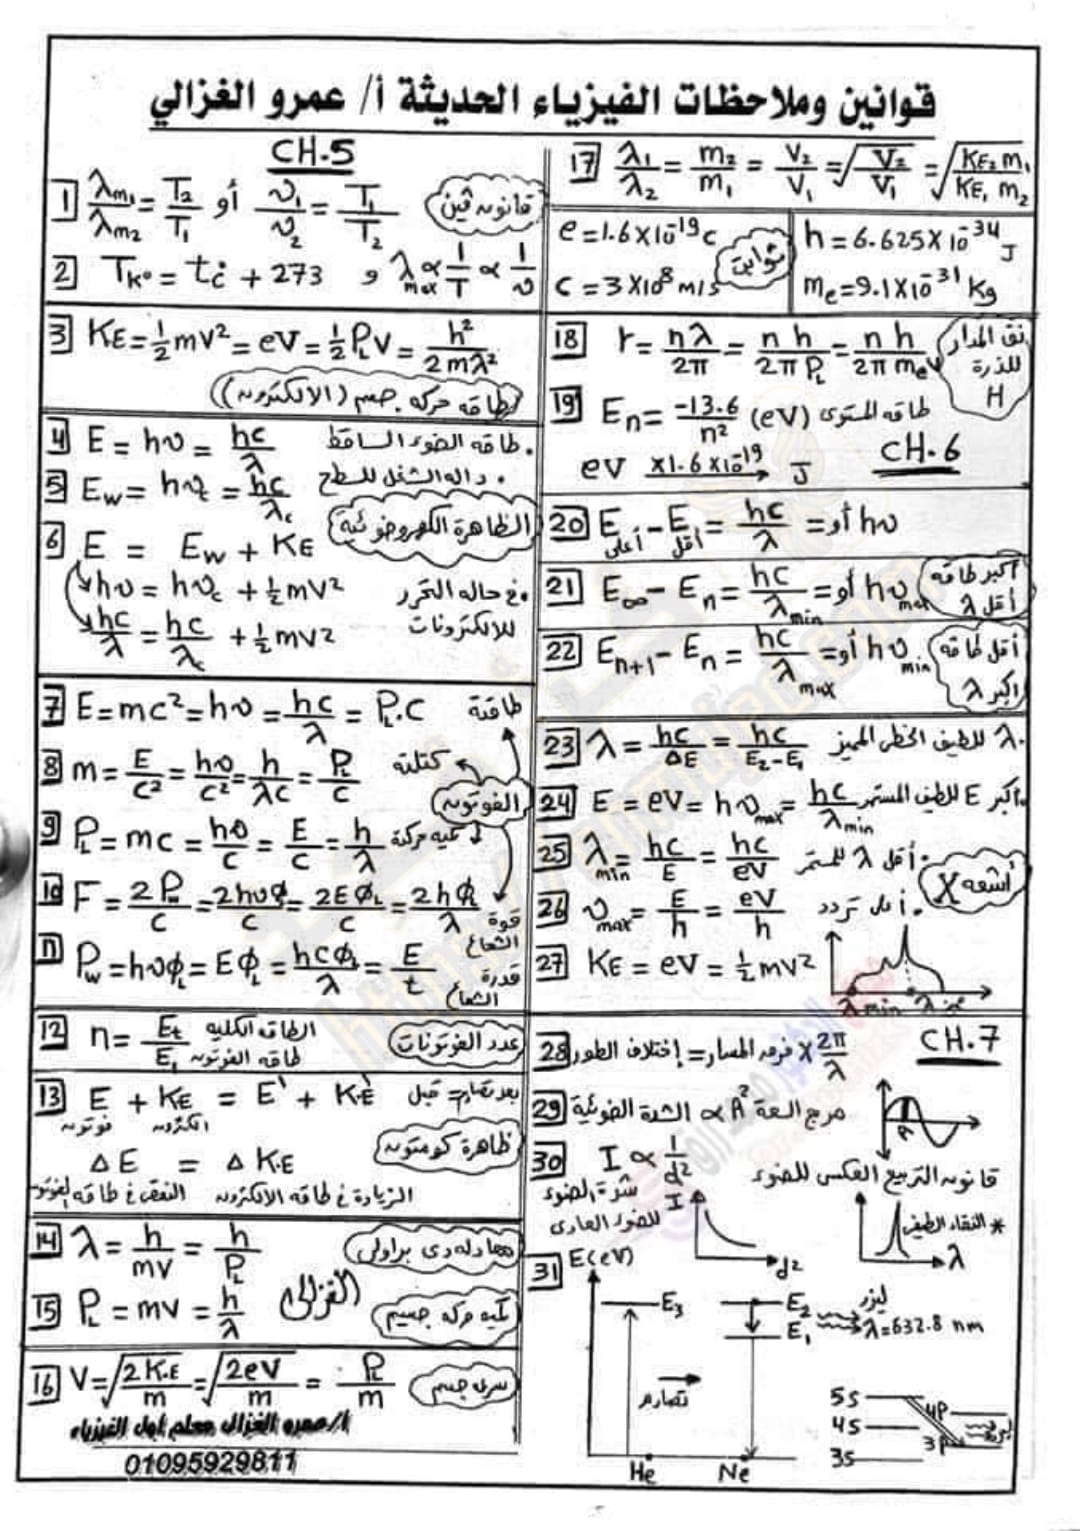 قوانين وملاحظات الفيزياء الحديثة أ/ عمرو الغزالي
CH.5
1 λm₁/λm₂ = T₂/T₁ أو υ₁/υ₂ = T₁/T₂ قانون ڤين
2 Tk° = t°c + 273 و λmax ∝ 1/T ∝ 1/υ
3 KE = ½mv² = eV = ½P_L V = h²/2mλ²
طاقه حركه جسم (الالكترون)
4 E = hυ = hc/λ طاقه الضوء الساقط
5 Ew = hυc = hc/λc داله الشغل للسطح
الظاهرة الكهروضوئية
6 E = Ew + KE
hυ = hυc + ½mv² في حاله التحرر
hc/λ = hc/λc + ½mv² للالكترونات
7 E = mc² = hυ = hc/λ = P_L.C طاقة
8 m = E/C² = hυ/C² = h/λC = P_L/C كتلته
الفوتون
9 P_L = mc = hυ/C = E/C = h/λ كميه حركة
10 F = 2Pw/C = 2hυφ_L/C = 2Eφ_L/C = 2hφ_L/λ قوة الشعاع
11 Pw = hυφ_L = Eφ_L = hcφ_L/λ = E/t قدرة الشعاع
12 n = Et/E₁ الطاقه الكليه طاقه الفوتون عدد الفوتونات
13 E + KE = E' + K.E' بعد تصادم = قبل
فوتون الكترون
ظاهرة كومتون
ΔE = ΔK.E
النقص في طاقه الفوتون الزيادة في طاقه الالكترون
14 λ = h/mv = h/P_L معادله دى براولى
15 P_L = mv = h/λ الغزالى كميه حركه جسيم
16 V = √(2K.E/m) = √(2eV/m) = P_L/m سرعه جسيم
أ/عمرو الغزالى معلم أول الفيزياء
01095929811
17 λ₁/λ₂ = m₂/m₁ = V₂/V₁ = √(V₂/V₁) = √(KE₂ m₁/KE₁ m₂)
e = 1.6X10⁻¹⁹ c
ثوابت
h = 6.625X10⁻³⁴ J
c = 3X10⁸ m/s
me = 9.1X10⁻³¹ Kg
18 r = nλ/2π = nh/2πP_L = nh/2πmeV نق المدار للذرة H
19 En = -13.6/n² (eV) طاقه المستوى
eV X1.6X10⁻¹⁹ J
CH.6
20 Eأعلى - Eأقل = hc/λ = أو hυ
21 E∞ - En = hc/λmin = أو hυmax أكبر طاقه أقل λ
22 En+1 - En = hc/λmax = أو hυmin أقل طاقه اكبر λ
23 λ = hc/ΔE = hc/E₂-E₁ λ للطيف الخطى المميز
24 E = eV = hυmax = hc/λmin اكبر E للطيف المستمر
25 λmin = hc/E = hc/eV أقل λ للمستمر
أشعه X
26 υmax = E/h = eV/h أعلى تردد
27 KE = eV = ½mv²
λ min λ مميز
CH.7
28 إختلاف الطور = فرق المسار X 2π/λ
29 مربع السعة A² ∝ الشدة الضوئية
30 I ∝ 1/d² قانون التربيع العكسى للضوء
شدة الضوء للضوء العادى
I
d2
* النقاء الطيفى
λ
31 E(eV)
E₃
E₂
E₁
ليزر
λ=632.8 nm
تصادم
He
Ne
5S
4S
3S
4P
3P